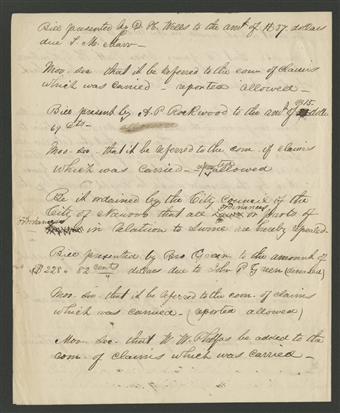 Bill presented by D. H. Wells to the amt of $37 dollars
due L. M. Marr —
Mov. sec. that it be referred to the com of claims
which was carried — reported allowed —
Bill present by A. P. Rockwood to the amt of $15.
Mov. sec. that it be referred to the com. of claims
which was carried — allowed
Be it ordained by the City Council of the
City of Nauvoo that all ordinances or parts of
ordinances in relation to Swine are hereby repealed
Bill presented by Bro Green to the amount of
$228. 82 cents dollars due to John P. Green
Mov. sec. that it be referred to the com. of claims
which was carried (reported allowed)
Mov. Sec. that W. W. Phelps be added to the
com. of claims which was carried —